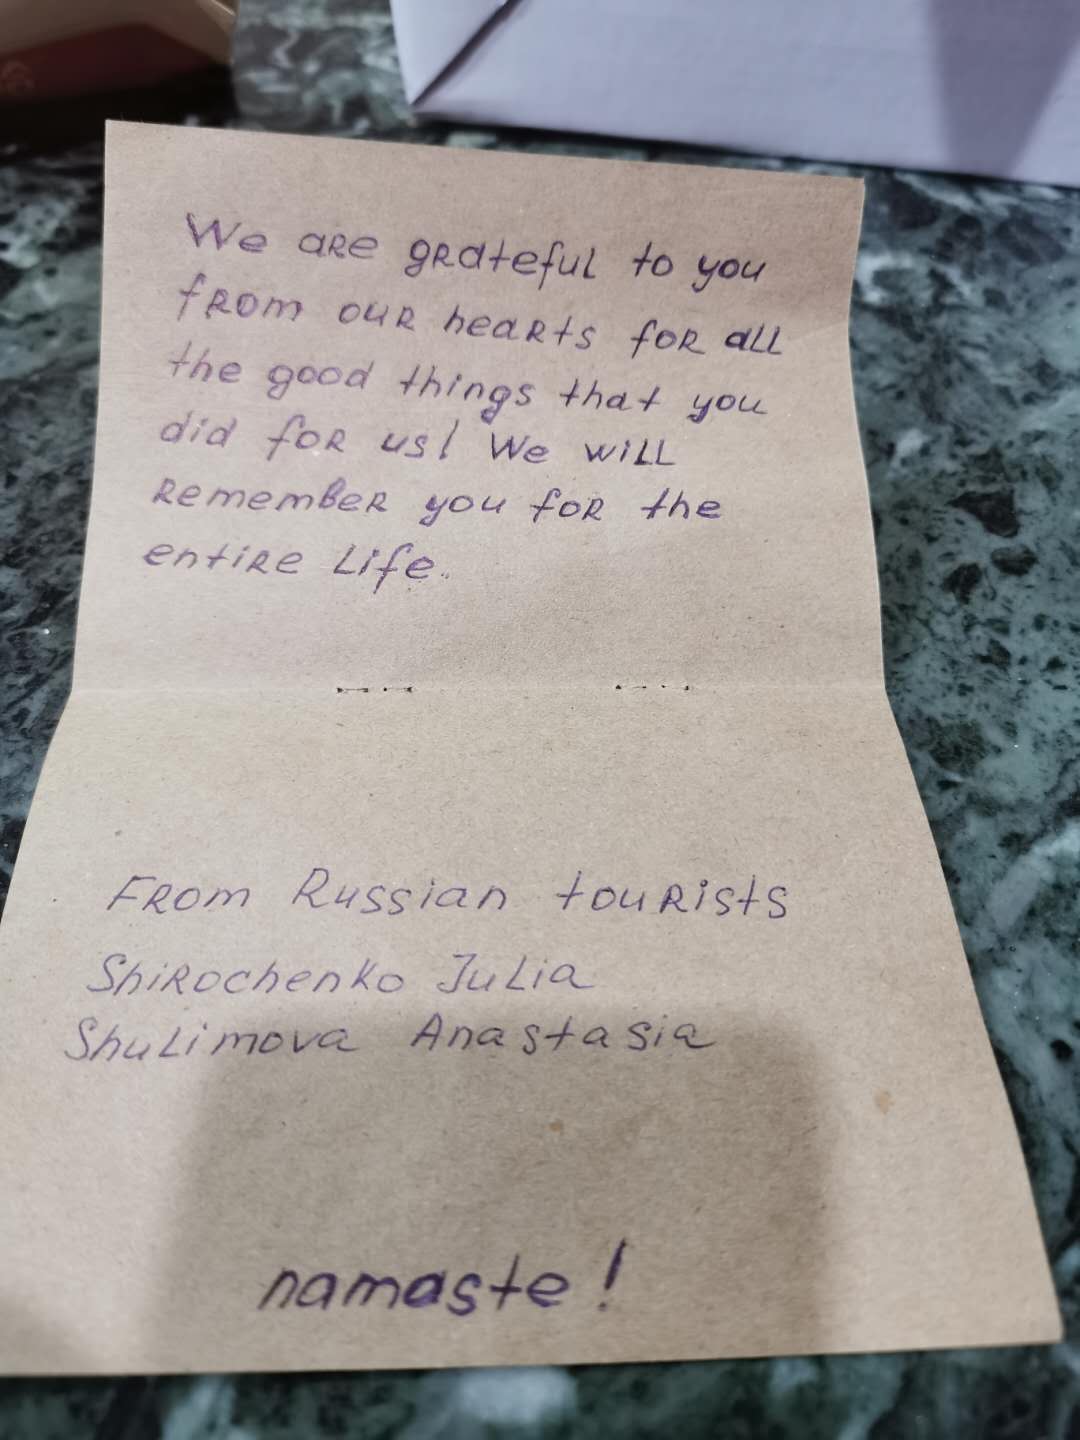 We are grateful to you
from our hearts for all
the good things that you
did for us! We will
remember you for the
entire life.
From Russian tourists
Shirochenko Julia
Shulimova Anastasia
namaste!